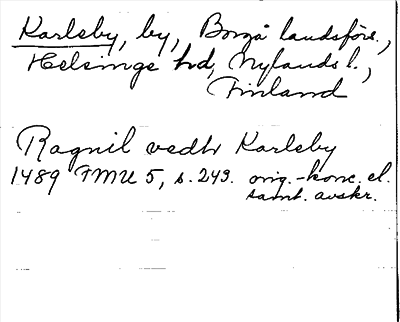 Karleby, by, Borgå landsförs.,
Helsinge hd, Nylands l.,
Finland
Ragnil vedh Karleby
1489 FMU 5, s. 243. orig.-konc. el.
samt. avskr.